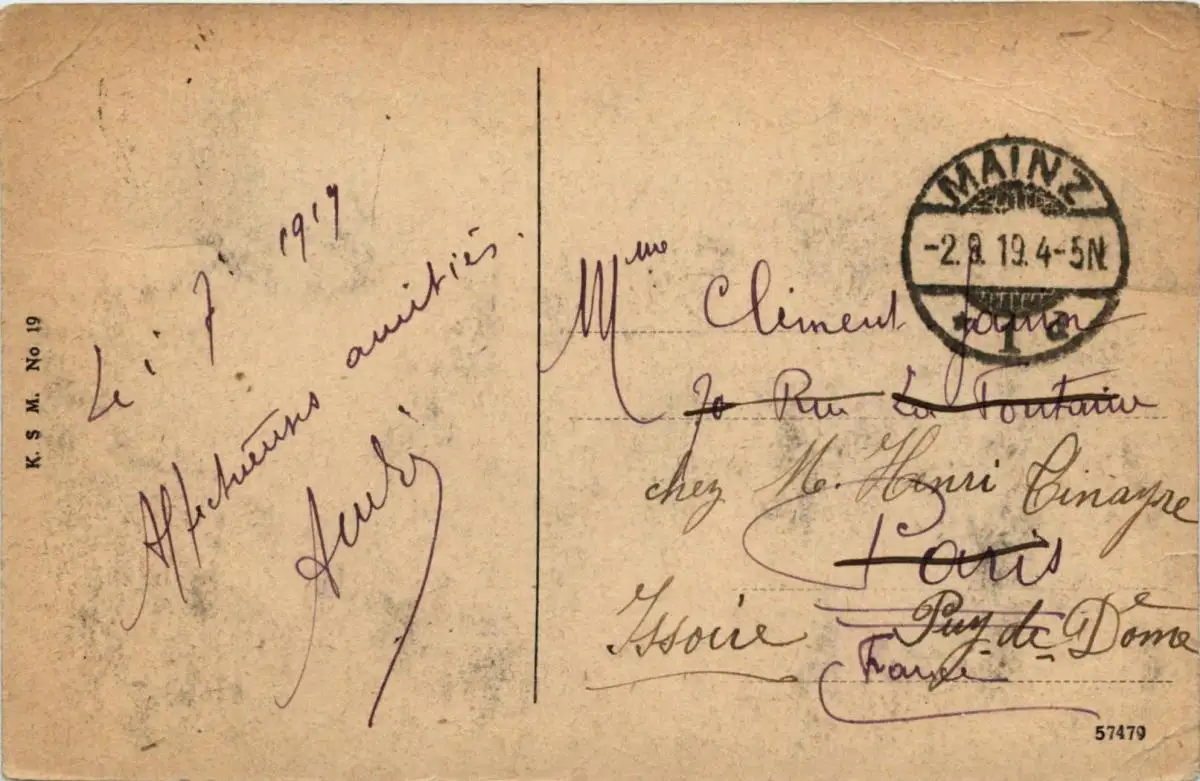 K. S. M. No 19
Le 1 7 1919
Affectueuses amitiés.
MAINZ
-2.9.19.4-5N.
* 1 c
Mme Clément
70 Rue La Fontaine
chez M. Henri Tinayre
Paris
Issoire Puy-de-Dôme
France
57479